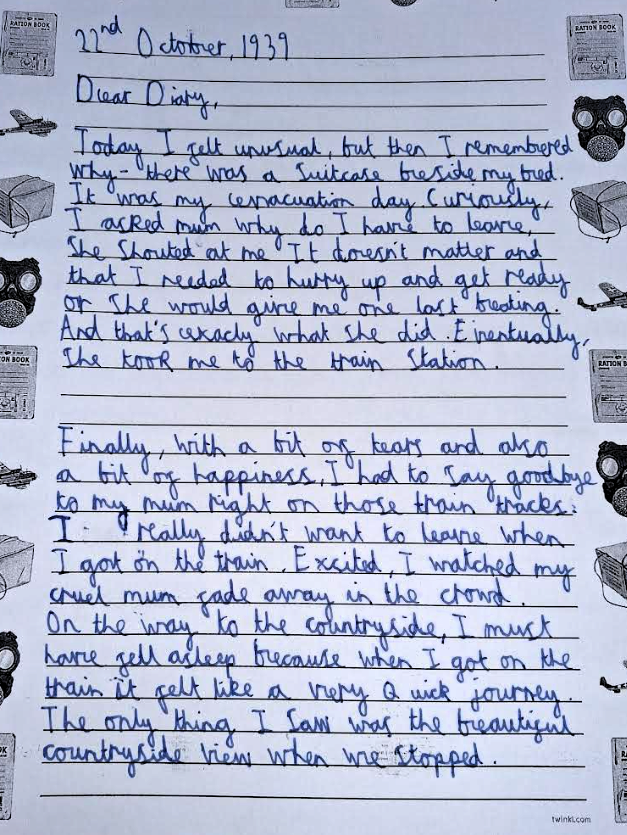 22nd October, 1939
Dear Diary,
Today I felt unusual, but then I remembered
why- there was a suitcase beside my bed.
It was my evacuation day. Curiously,
I asked mum why do I have to leave,
she shouted at me It doesn't matter and
that I needed to hurry up and get ready
or she would give me one last beating.
And that's exacly what she did. Eventually,
she took me to the train station.
Finally, with a bit of tears and also
a bit of happiness, I had to say goodbye
to my mum right on those train tracks.
I really didn't want to leave when
I got on the train. Excited, I watched my
cruel mum fade away in the crowd.
On the way to the countryside, I must
have fell asleep because when I got on the
train it felt like a very Quick journey.
The only thing I saw was the beautiful
countryside view when we stopped.
RATION BOOK
RATION BOOK
RATION BOOK
twinkl.com